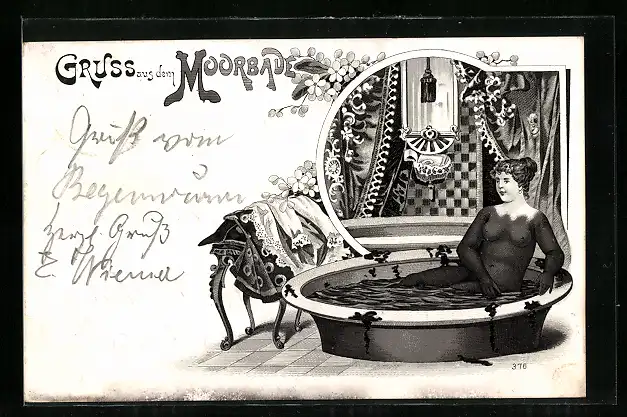 GRUSS aus dem MOORBADE
Gruß vom
Regenwurm
herzl. Gruß
E. Wiemer
376